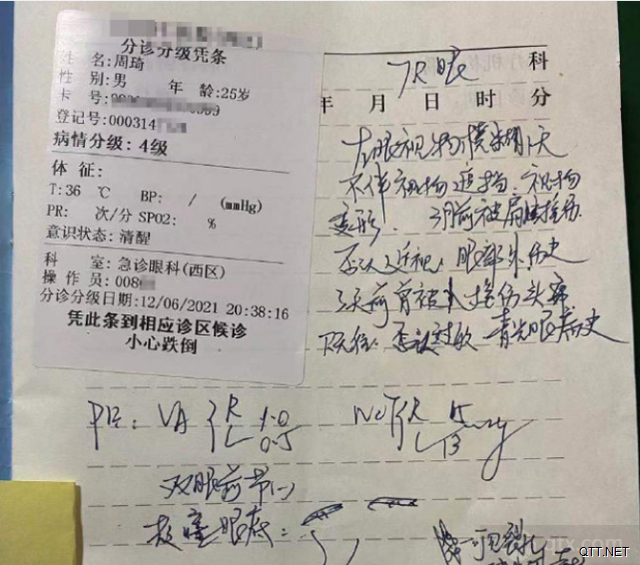 分诊分级凭条
姓 名:周琦
性 别:男 年 龄:25岁
卡 号:
登记号:000314
病情分级: 4级
体 征:
T:36 ℃ BP: / (mmHg)
PR: 次/分 SPO2: %
意识状态:清醒
科 室:急诊眼科(西区)
操 作 员:008
分诊分级日期:12/06/2021 20:38:16
凭此条到相应诊区候诊
小心跌倒
眼 科
年 月 日 时 分
左眼视物模糊1天
不伴视物遮挡、视物
变形. 3月前被肩膀撞伤
否认近视、眼部外伤史
3天前有被人撞伤头部
既往: 否认过敏 青光眼病史
PE: VA R 1.0
L 0.5
NCT R 15 mmHg
L 13
双眼前节(-)
散瞳眼底:
可见裂孔
QTT.NET